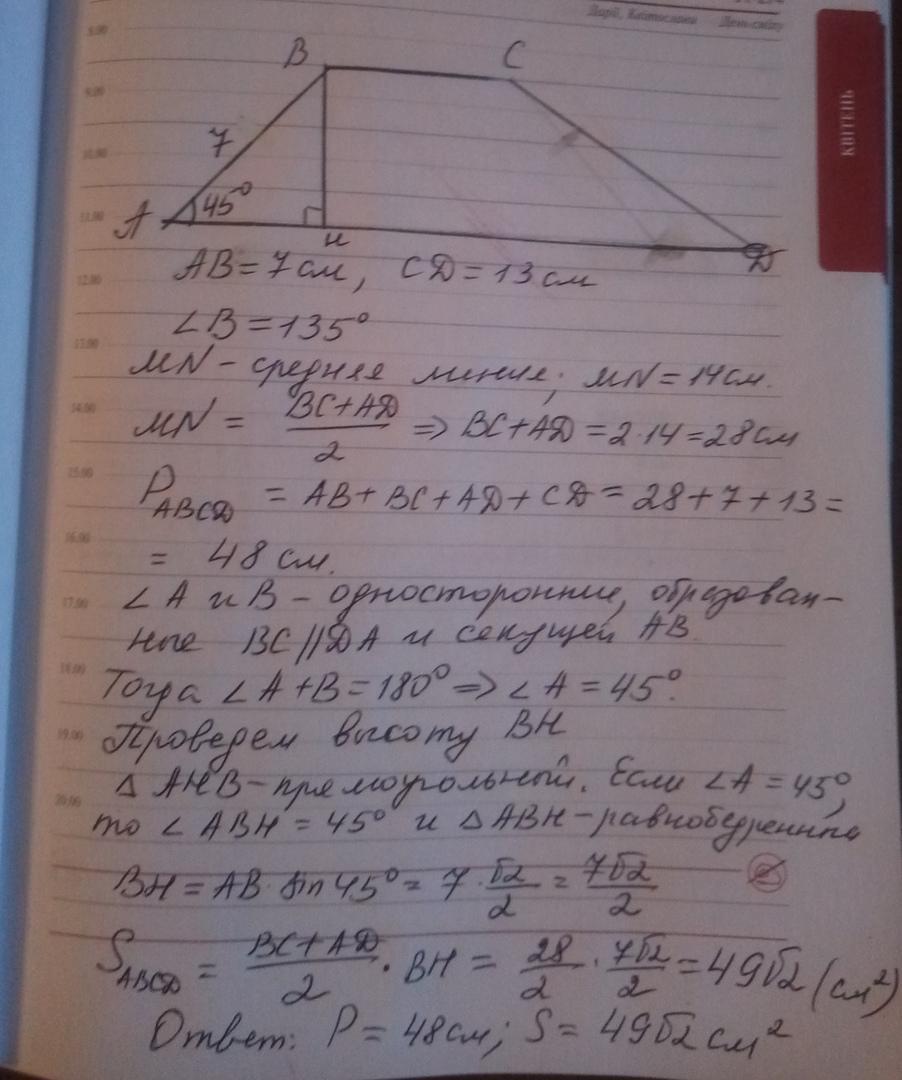 Дарії, Квітослава День сміху
КВІТЕНЬ
8.00
9.00
10.00
11.00
12.00
13.00
14.00
15.00
16.00
17.00
18.00
19.00
20.00
B C
7
A 45° H D
AB = 7 см, CD = 13 см
∠B = 135°
MN - средняя линия; MN = 14 см.
MN = BC+AD/2 ⇒ BC+AD = 2·14 = 28 см
P ABCD = AB + BC + AD + CD = 28 + 7 + 13 =
= 48 см.
∠A и B - односторонние, образован-
ные BC || DA и секущей AB.
Тогда ∠A + B = 180° ⇒ ∠A = 45°.
Проведем высоту BH
△ AHB - прямоугольный. Если ∠A = 45°,
то ∠ABH = 45° и △ABH - равнобедренный
BH = AB · sin 45° = 7 · √2/2 = 7√2/2
S ABCD = BC+AD/2 · BH = 28/2 · 7√2/2 = 49√2 (см²)
Ответ: P = 48 см; S = 49√2 см²